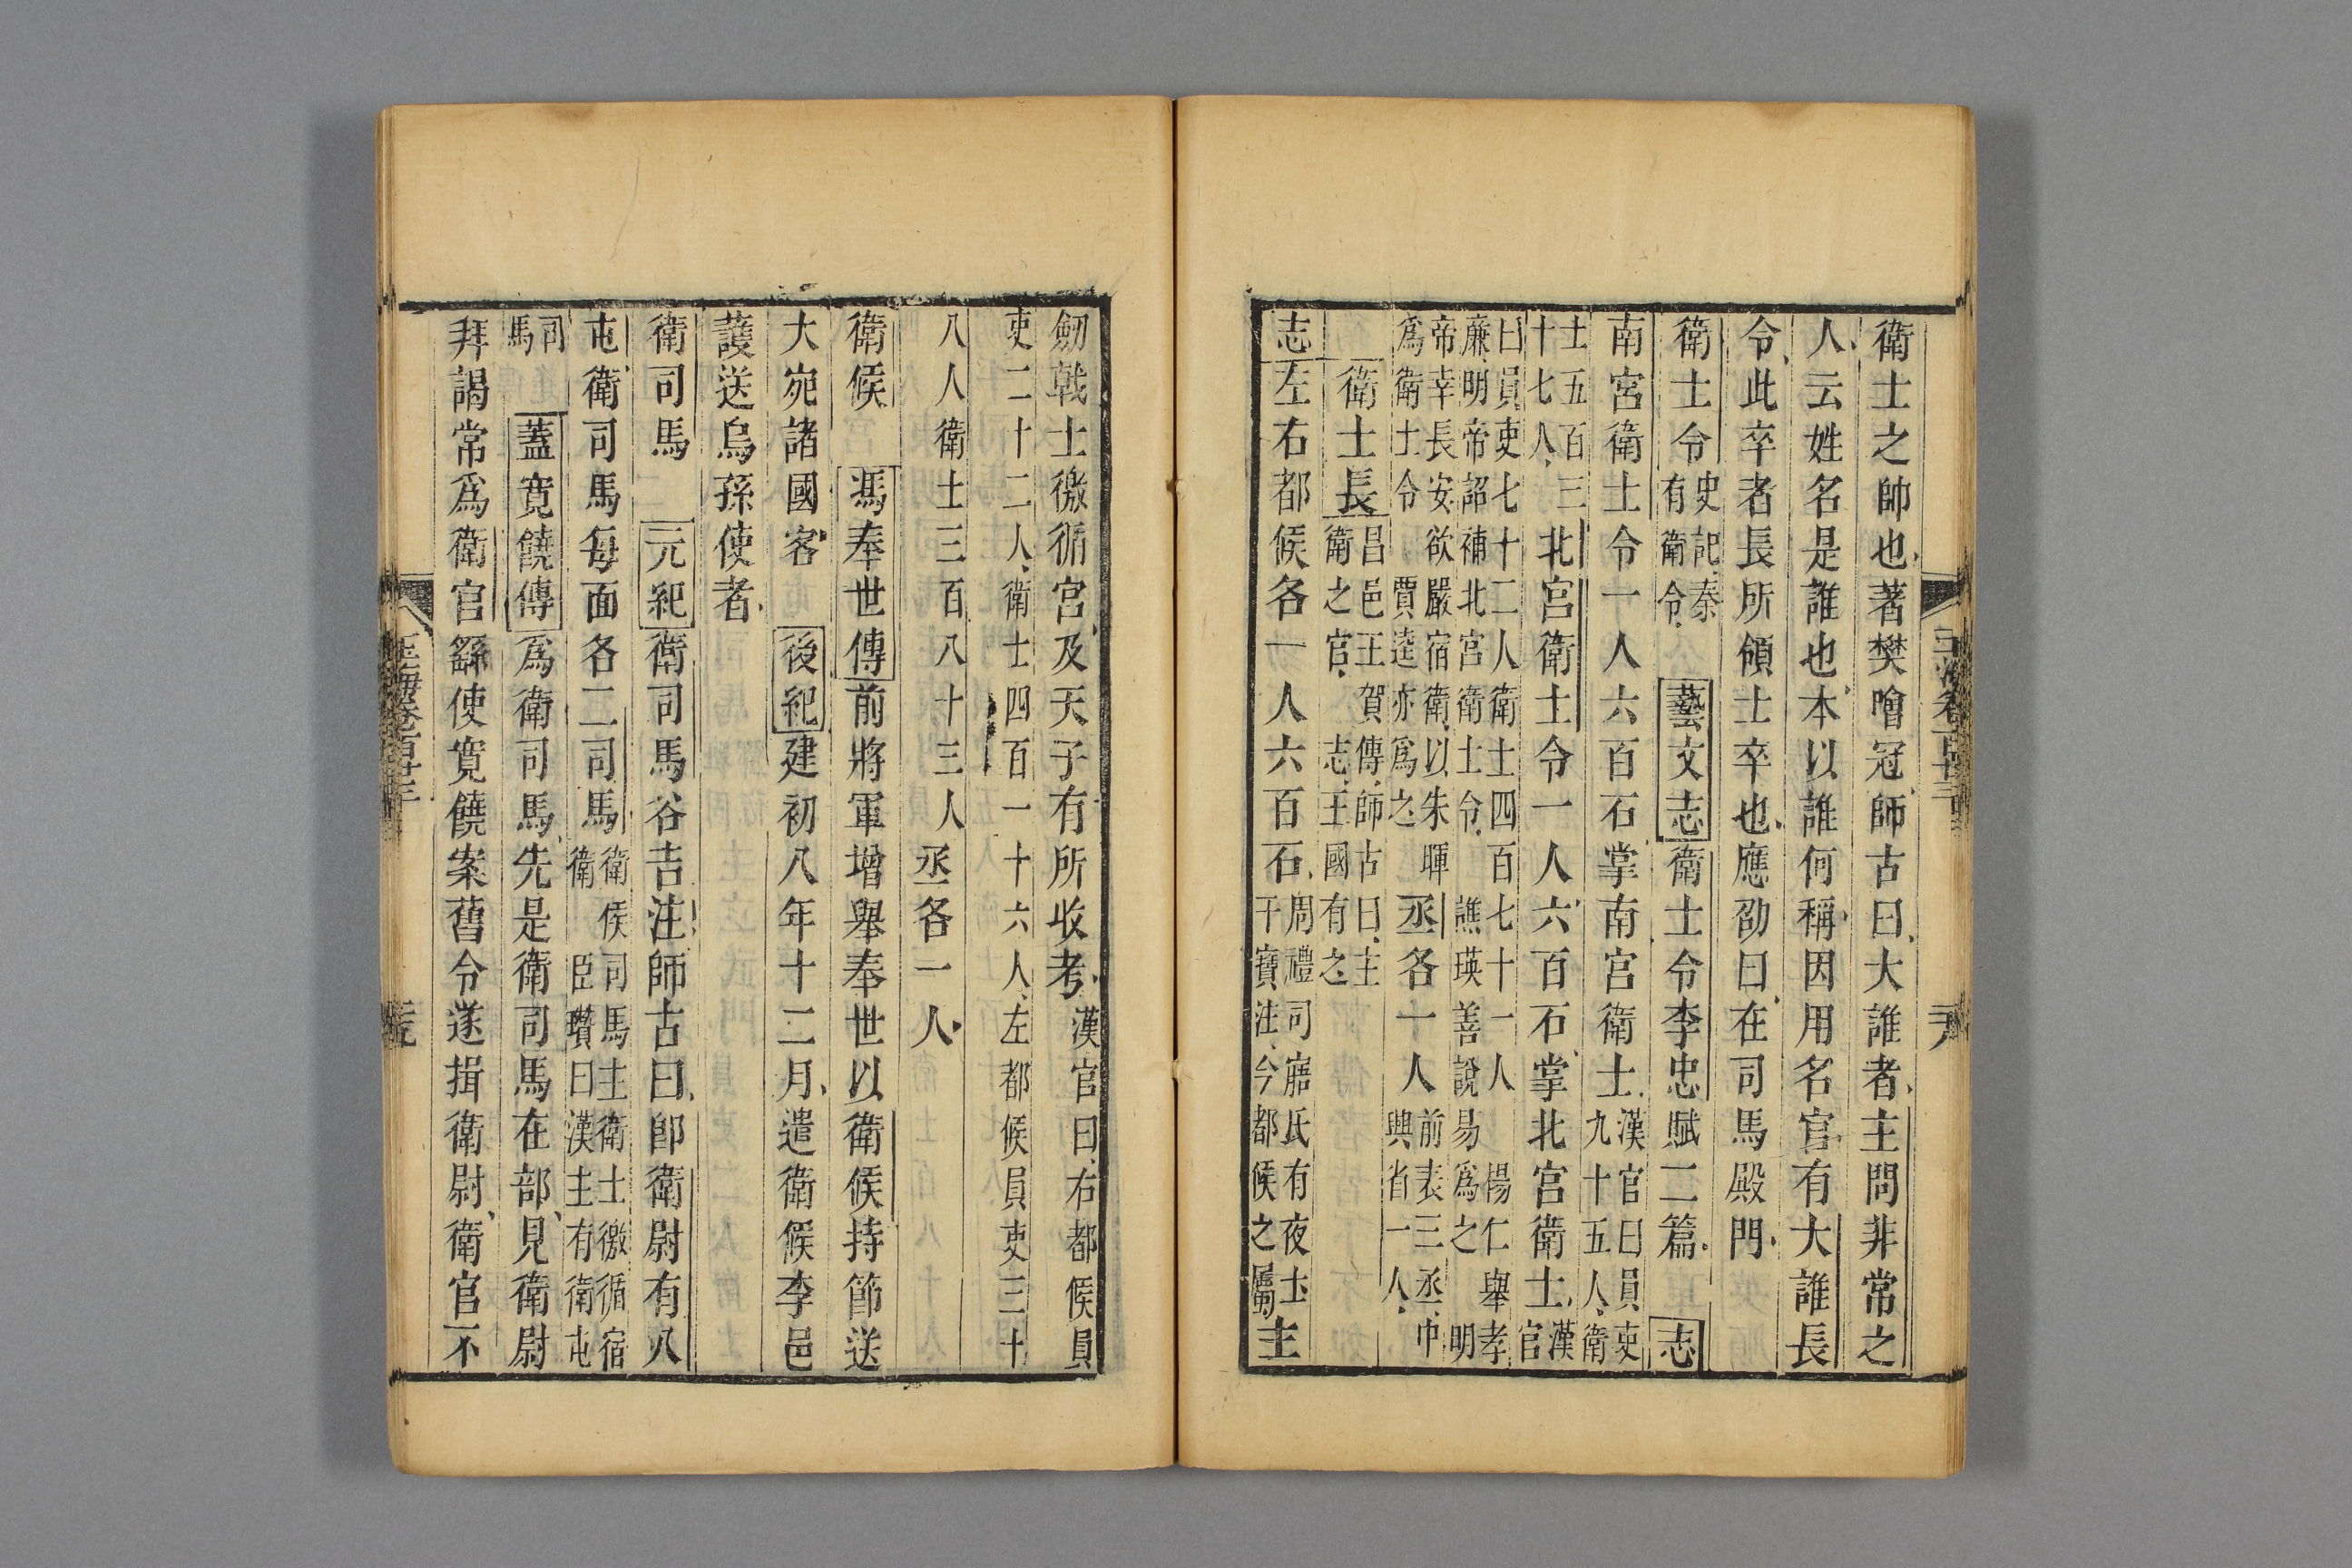 衛士之帥也著樊噲冠師古曰大誰者主問非常之
人云姓名是誰也本以誰何稱因用名官有大誰長
令此卒者長所領士卒也應劭曰在司馬殿門
衛士令史記秦有衛令藝文志衛士令李忠賦二篇志
南宮衛士令一人六百石掌南宮衛士漢官曰員吏九十五人衛
士五百三十七人北宮衛士令一人六百石掌北宮衛士漢官
曰員吏七十二人衛士四百七十一人楊仁舉孝廉明帝詔補北宮衛士令譙瑛善說易爲之明
帝幸長安欲嚴宿衛以朱暉爲衛士令賈逵亦爲之丞各一人前表三丞中興省一人
衛士長昌邑王賀傳師古曰主衛之官志王國有之
志左右都候各一人六百石周禮司寤氏有夜士干寶注今都候之屬主
劒戟士徼循宮及天子有所收考漢官曰右都候員
吏二十二人衛士四百一十六人左都候員吏三十
八人衛士三百八十三人丞各一人
衛候馮奉世傳前將軍增舉奉世以衛候持節送
大宛諸國客後紀建初八年十二月遣衛候李邑
護送烏孫使者
衛司馬元紀衛司馬谷吉注師古曰卽衛尉有八
屯衛司馬每面各二司馬衛候司馬主衛士徼循宿衛臣瓚曰漢主有衛屯
司馬蓋寬饒傳爲衛司馬先是衛司馬在部見衛尉
拜謁常爲衛官繇使寬饒案舊令遂揖衛尉衛官不